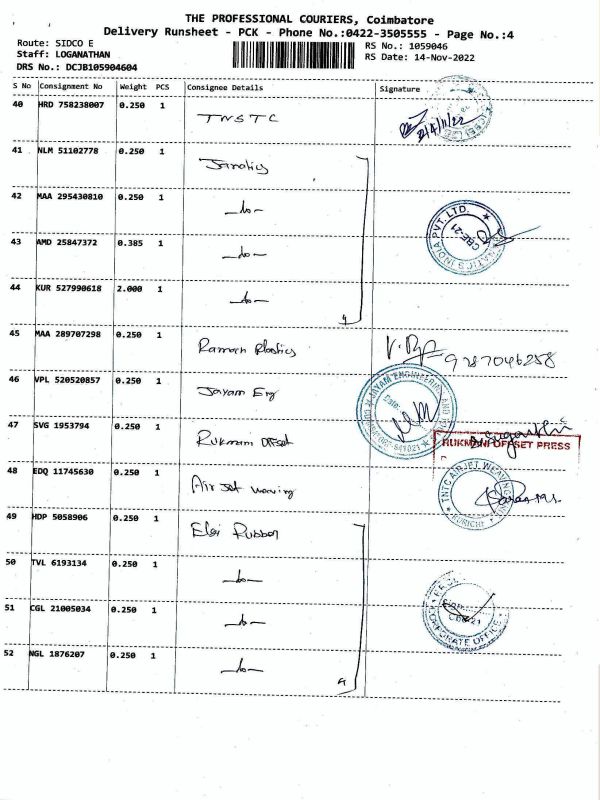 THE PROFESSIONAL COURIERS, Coimbatore
Delivery Runsheet - PCK - Phone No.:0422-3505555 - Page No.:4
Route: SIDCO E
RS No.: 1059046
Staff: LOGANATHAN
RS Date: 14-Nov-2022
DRS No.: DCJB105904604
S No Consignment No Weight PCS Consignee Details Signature
40 HRD 758238007 0.250 1 TNSTC
41 NLM 51102778 0.250 1 Janatics
42 MAA 295430810 0.250 1 -do-
43 AMD 25847372 0.385 1 -do-
44 KUR 527990618 2.000 1 -do-
45 MAA 289707298 0.250 1 Raman Plastics 9787046258
46 VPL 520520857 0.250 1 Jayam Eng
47 SVG 1953794 0.250 1 Rukmani Offset
RUKMANI OFFSET PRESS
48 EDQ 11745630 0.250 1 Air Jet weaving
49 HDP 5058906 0.250 1 Elgi Rubber
50 TVL 6193134 0.250 1 -do-
51 CGL 21005034 0.250 1 -do-
CORPORATE OFFICE
52 NGL 1876207 0.250 1 -do-